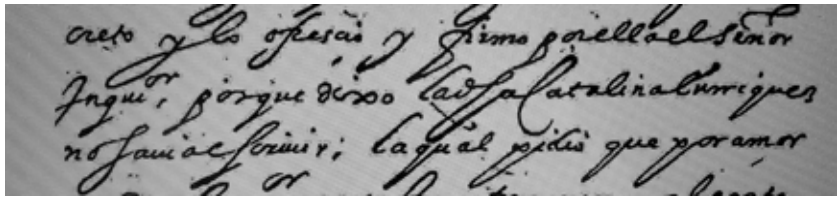 creto y lo ofrescio y firmo por ella el señor
Inqui.or, porque dixo la dha Catalina Enrriquez
no savia escrivir; la qual pidio que por amor